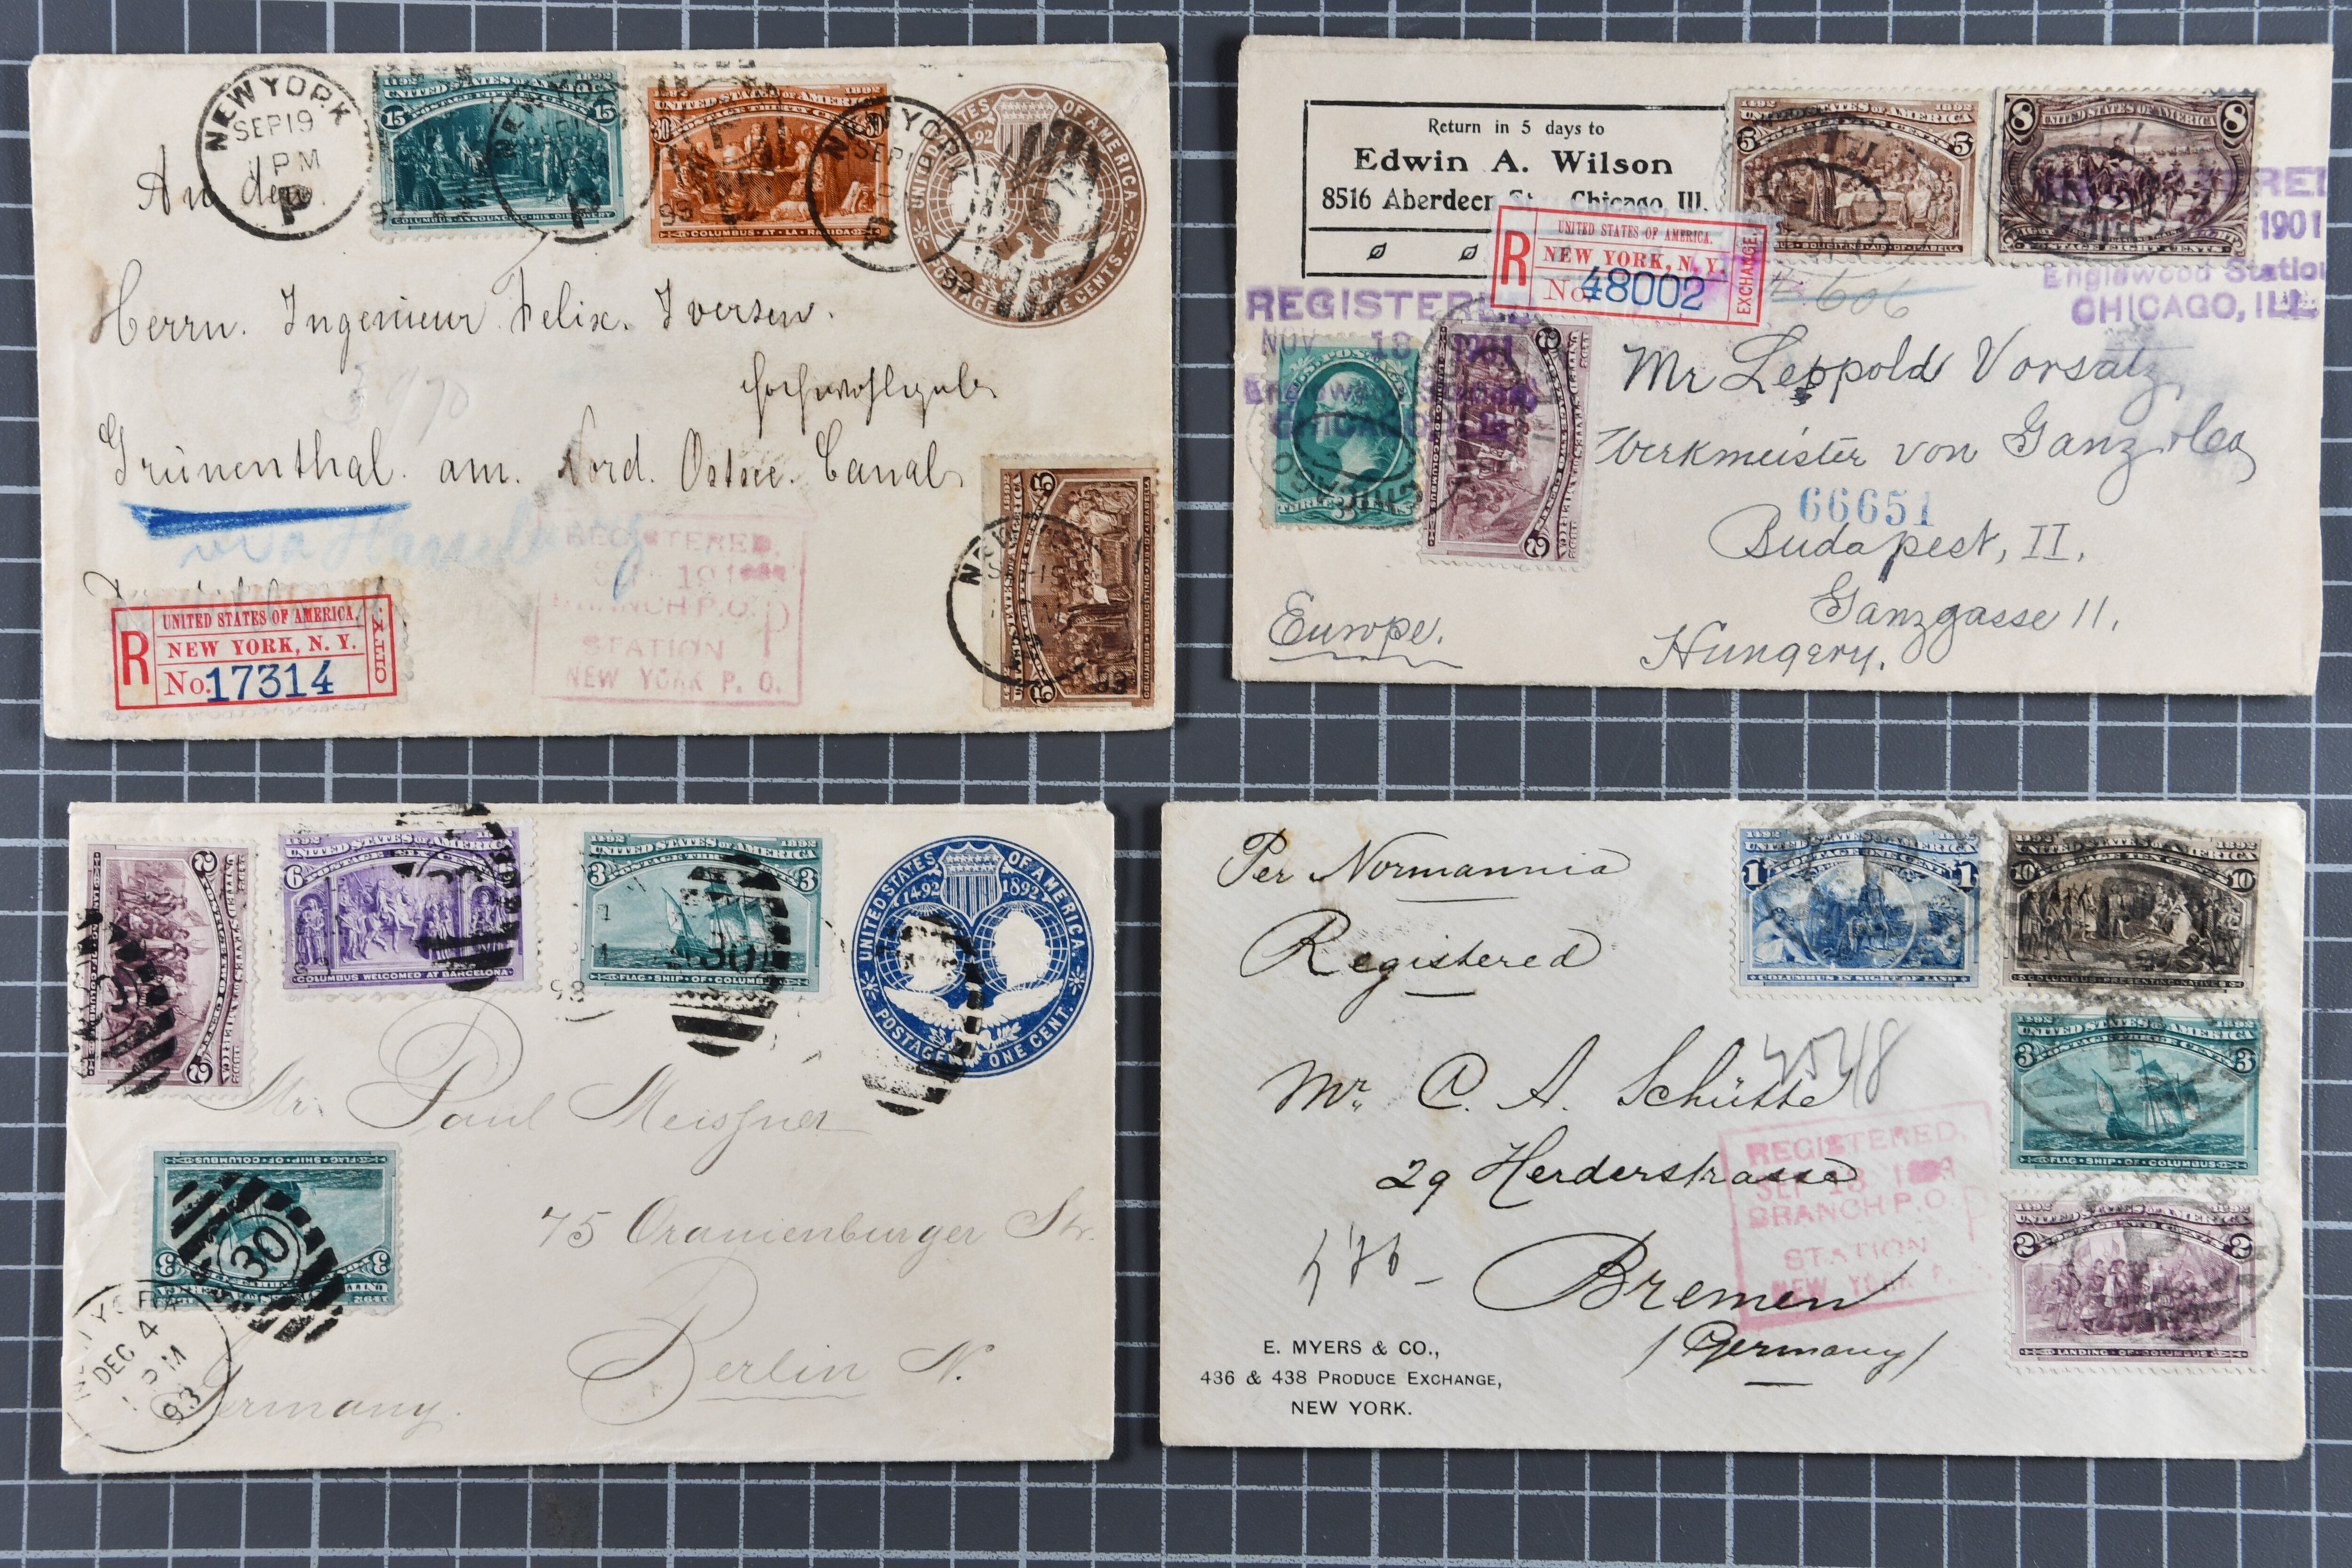 NEW YORK
SEP 19
1 PM
P
1492 1892
UNITED STATES OF AMERICA
POSTAGE FIFTEEN CENTS
15 15
COLUMBUS ANNOUNCING HIS DISCOVERY
1892
UNITED STATES OF AMERICA
POSTAGE THIRTY CENTS
30 30
COLUMBUS AT LA RABIDA
NEW YORK
SEP
93
UNITED STATES OF AMERICA.
POSTAGE FIVE CENTS.
An den.
Herrn. Ingenieur. Felix. Iversen.
Grünenthal. am. Nord. Ostsee. Canal
via Hamburg
5
5
COLUMBUS SOLICITING AID OF ISABELLA
93
REGISTERED.
19
BRANCH P.O.
STATION P
NEW YORK P. O.
R
UNITED STATES OF AMERICA.
NEW YORK, N. Y.
No. 17314
Return in 5 days to
Edwin A. Wilson
8516 Aberdeen St. Chicago, Ill.
R
UNITED STATES OF AMERICA.
NEW YORK, N. Y.
No. 48002
EXCHANGE.
1492 1892
UNITED STATES OF AMERICA
5 5
COLUMBUS SOLICITING AID OF ISABELLA
8 8
UNITED STATES OF AMERICA
POSTAGE EIGHT CENTS
1901
Englewood Station
CHICAGO, ILL.
# 606
REGISTERED
NOV 18 1901
Englewood Station
CHICAGO
U.S. POSTAGE
THREE 3 CENTS
2
2
CHICAGO
Mr Leopold Vorsatz
Werkmeister von Ganz & Co
66651
Budapest, II.
Ganzgasse 11.
Hungery.
Europe.
2
2
1492
UNITED STATES OF AMERICA
POSTAGE SIX CENTS
6 6
COLUMBUS WELCOMED AT BARCELONA
1492 1892
UNITED STATES OF AMERICA
POSTAGE THREE CENTS
3 3
FLAG SHIP OF COLUMBUS
30
93
UNITED STATES OF AMERICA.
1492 1892
POSTAGE ONE CENT.
Mr. Paul Meissner
75 Oranienburger Str.
Berlin N.
Germany.
FLAG SHIP OF COLUMBUS
3 3
30
NEW YORK
DEC 4
PM
93
Per Normannia
Registered
Mr. C. A. Schütte
29 Herderstrasse
Bremen
/Germany/
E. MYERS & CO.,
436 & 438 PRODUCE EXCHANGE,
NEW YORK.
1492 1892
UNITED STATES OF AMERICA
POSTAGE ONE CENT
1 1
COLUMBUS IN SIGHT OF LAND
1492 1892
UNITED STATES OF AMERICA
POSTAGE TEN CENTS
10 10
COLUMBUS PRESENTING NATIVES
1492 1892
UNITED STATES OF AMERICA
POSTAGE THREE CENTS
3 3
FLAG SHIP OF COLUMBUS
1492 1892
UNITED STATES OF AMERICA
POSTAGE TWO CENTS
2 2
LANDING OF COLUMBUS
REGISTERED,
SEP 18 1893
BRANCH P.O.
STATION P
NEW YORK P